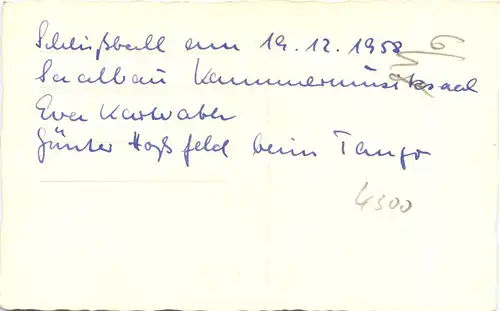 Schlußball am 19.12.1958
Saalbau Kammermusiksaal
Eva
Günter Hoßfeld beim Tango
4500